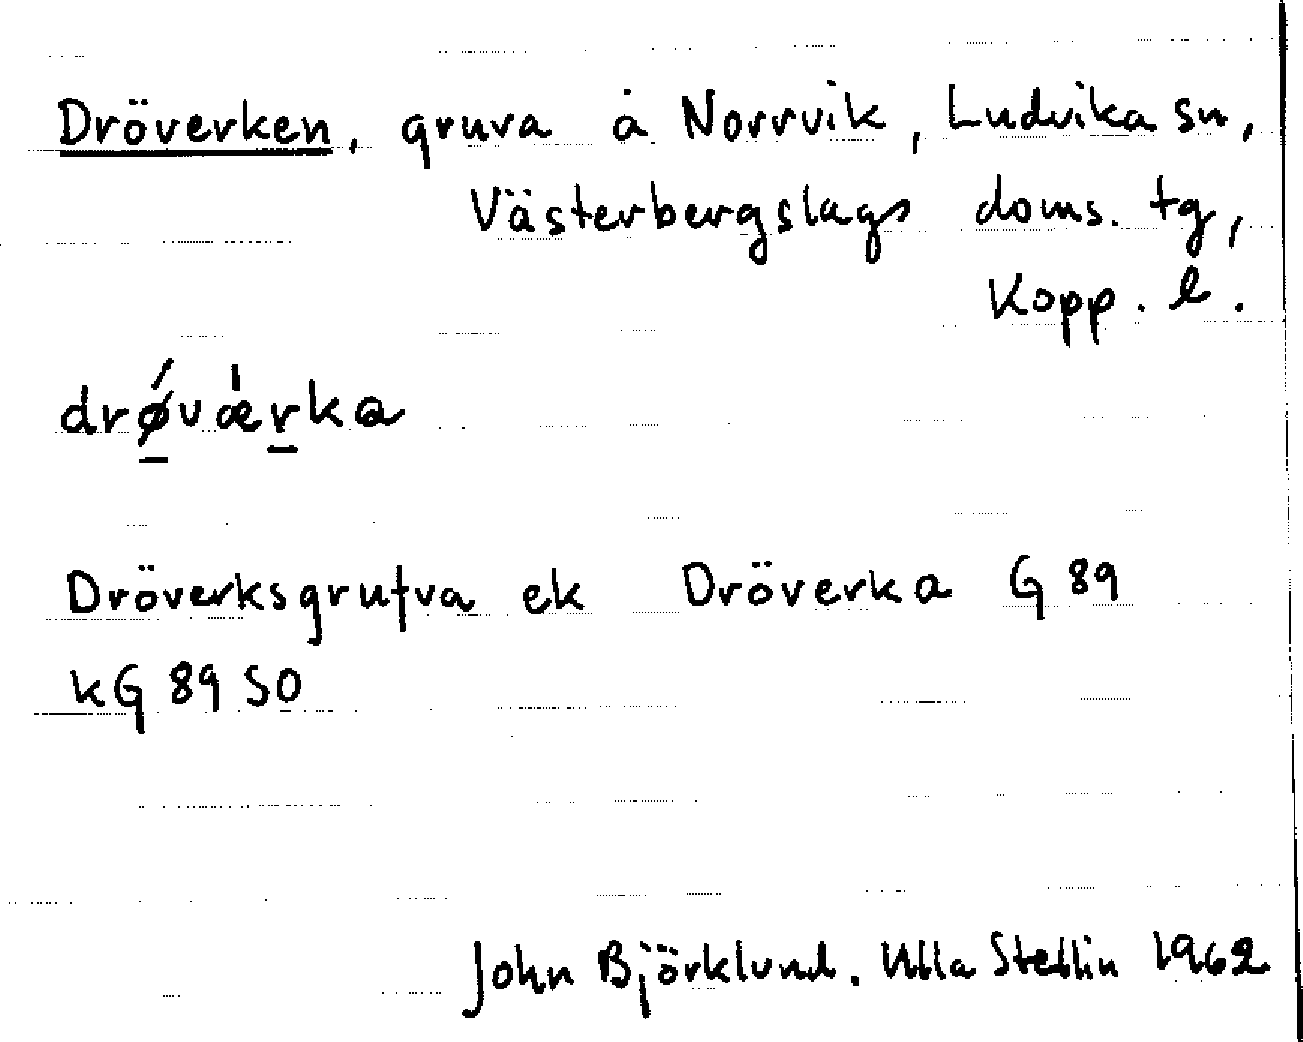 Dröverken, gruva å Norrvik, Ludvika sn,
Västerbergslags doms. tg,
Kopp. l.
drǿvæ̍rka
Dröverksgrufva ek Dröverka G 89
kG 89 SO
John Björklund. Ulla Stellin 1962